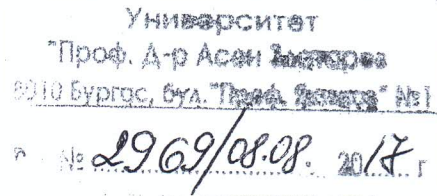 Университет
"Проф. Д-р Асен Златаров"
8010 Бургас, бул. "Проф. Якимов" №1
№ 2969/08.08. 2017 г